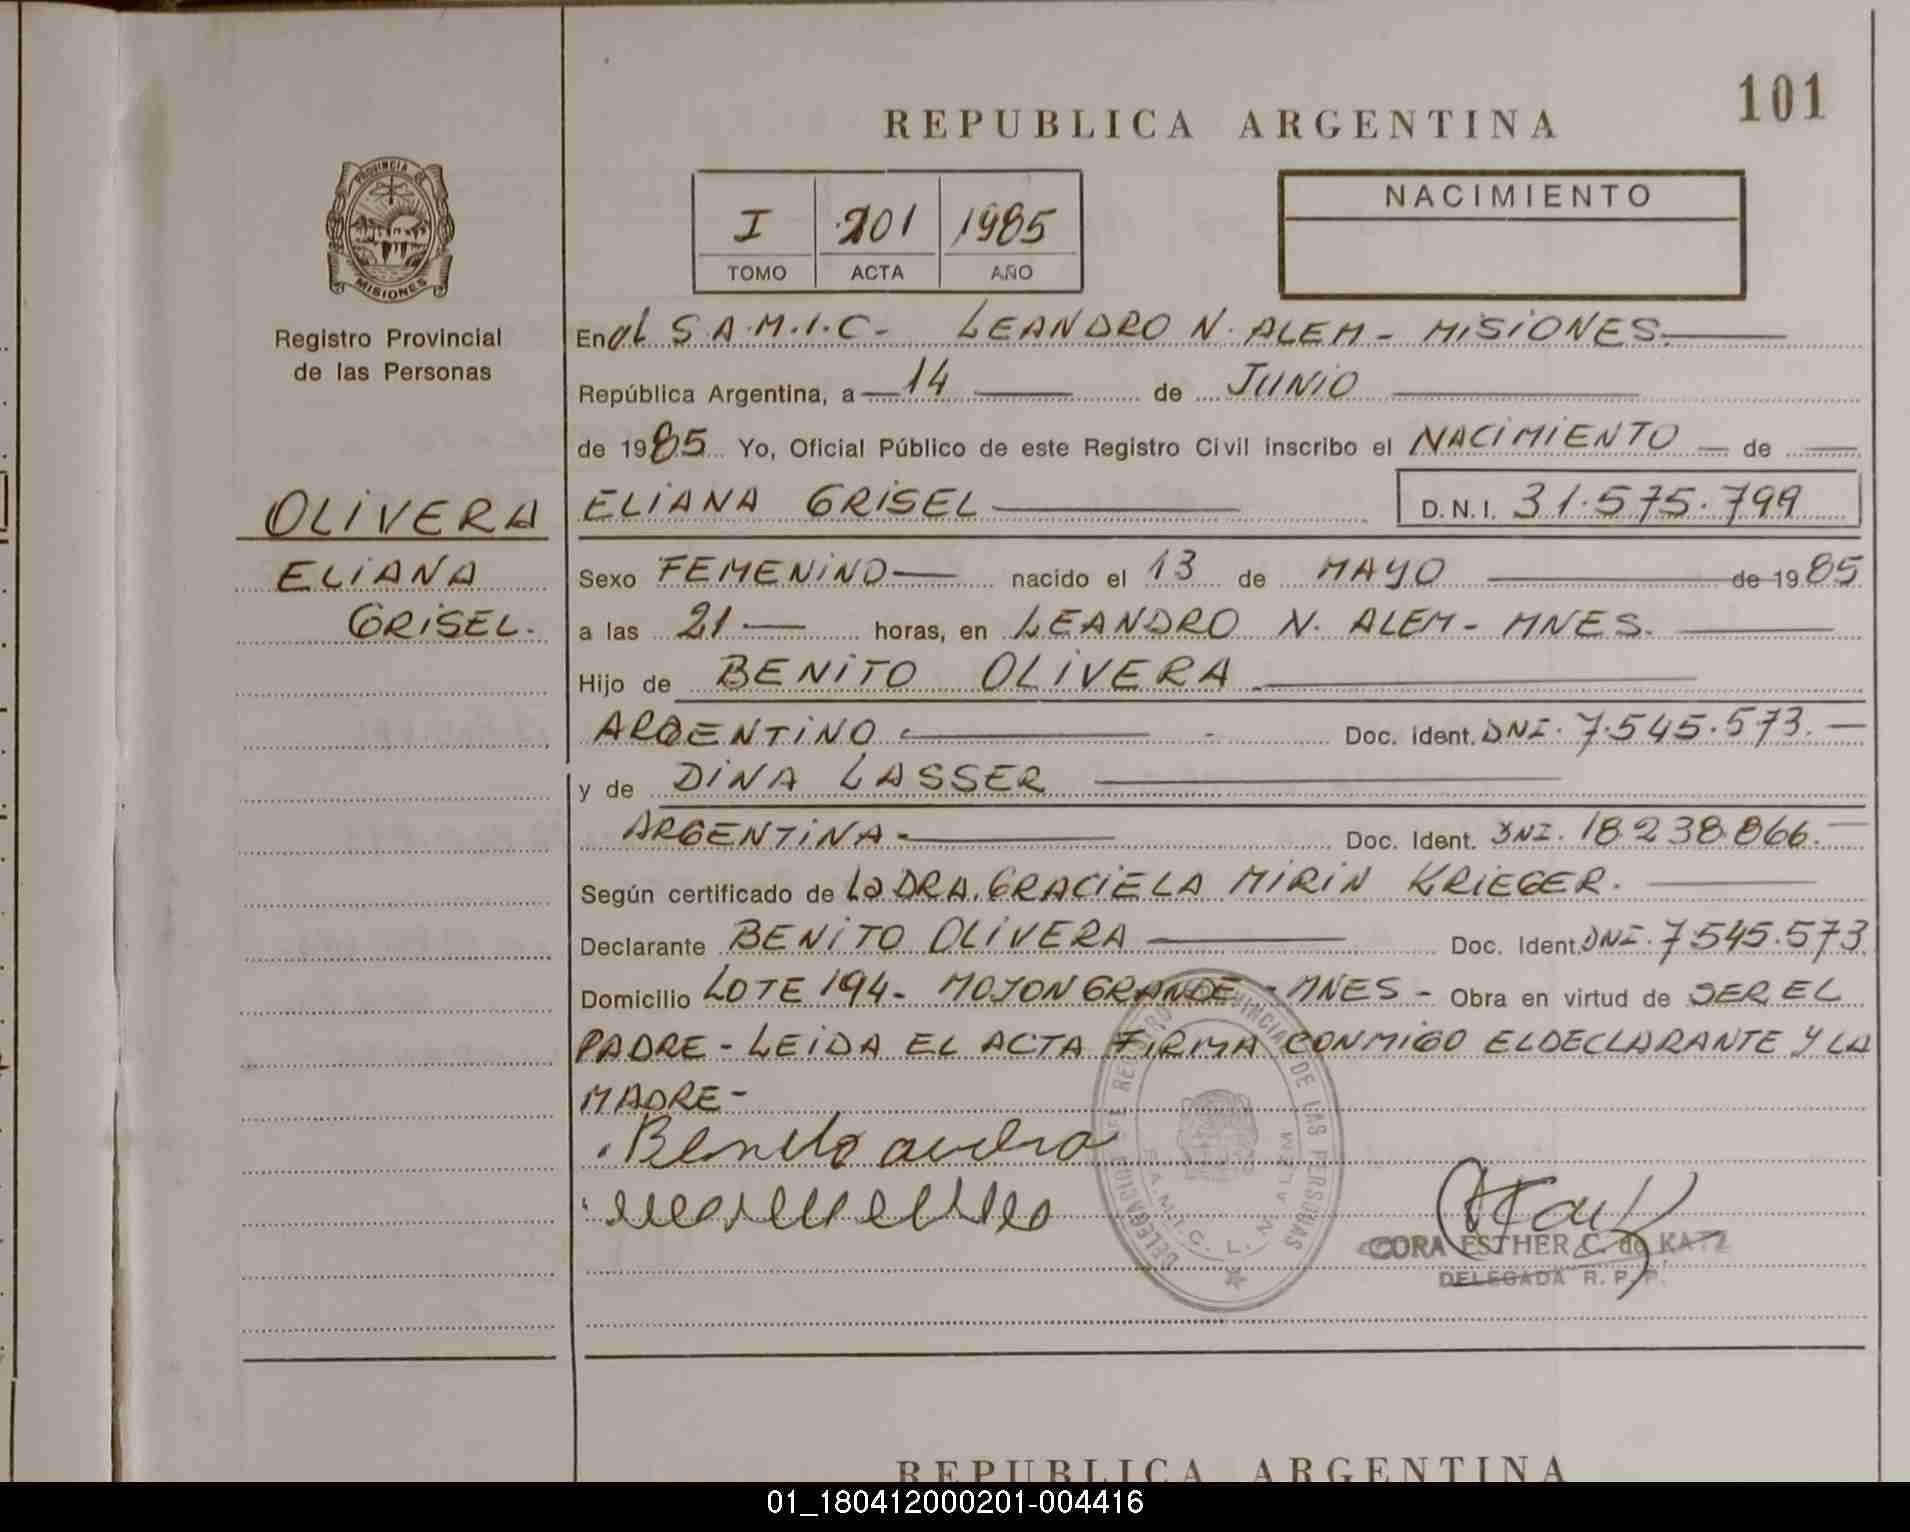 101
REPUBLICA ARGENTINA
PROVINCIA DE
MISIONES
Registro Provincial
de las Personas
I 201 1985
TOMO ACTA AÑO
NACIMIENTO
En el S.A.M.I.C- LEANDRO N. ALEM - MISIONES.
República Argentina, a 14 de JUNIO
de 1985 Yo, Oficial Público de este Registro Civil inscribo el NACIMIENTO de
OLIVERA
ELIANA
GRISEL.
ELIANA GRISEL D.N.I. 31.575.799
Sexo FEMENINO nacido el 13 de MAYO de 1985
a las 21 horas, en LEANDRO N. ALEM - MNES.
Hijo de BENITO OLIVERA
ARGENTINO Doc. ident. DNI. 7.545.573.
y de DINA LASSER
ARGENTINA - Doc. Ident. DNI. 18.238.866.
Según certificado de La DRA. GRACIELA MIRIN KRIEGER.
Declarante BENITO OLIVERA Doc. Ident. DNI. 7545.573
Domicilio LOTE 194- MOJON GRANDE - MNES - Obra en virtud de SER EL
PADRE - LEIDA EL ACTA FIRMA CONMIGO EL DECLARANTE Y LA
MADRE -
Benito
DELEGACION DE REGISTRO PROVINCIAL DE LAS PERSONAS
S.A.M.I.C. L. N. ALEM
CORA ESTHER C. de KATZ
DELEGADA R. P. P.
REPUBLICA ARGENTINA
01_180412000201-004416